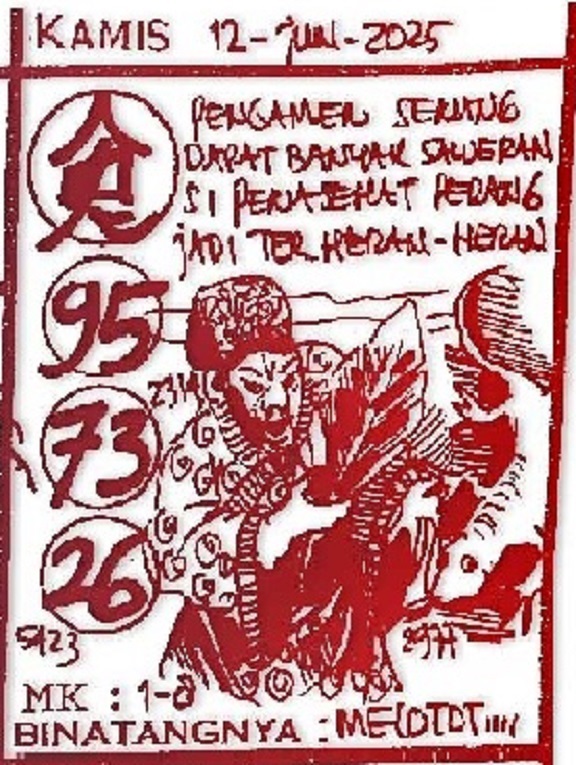 KAMIS 12-JUN-2025
食
PENGAMEN SERING
DAPAT BANYAK SAWERAN
SI PENASEHAT PERANG
JADI TERHERAN-HERAN
95
73
26
MK : 1-8
BINATANGNYA : MELOTOT